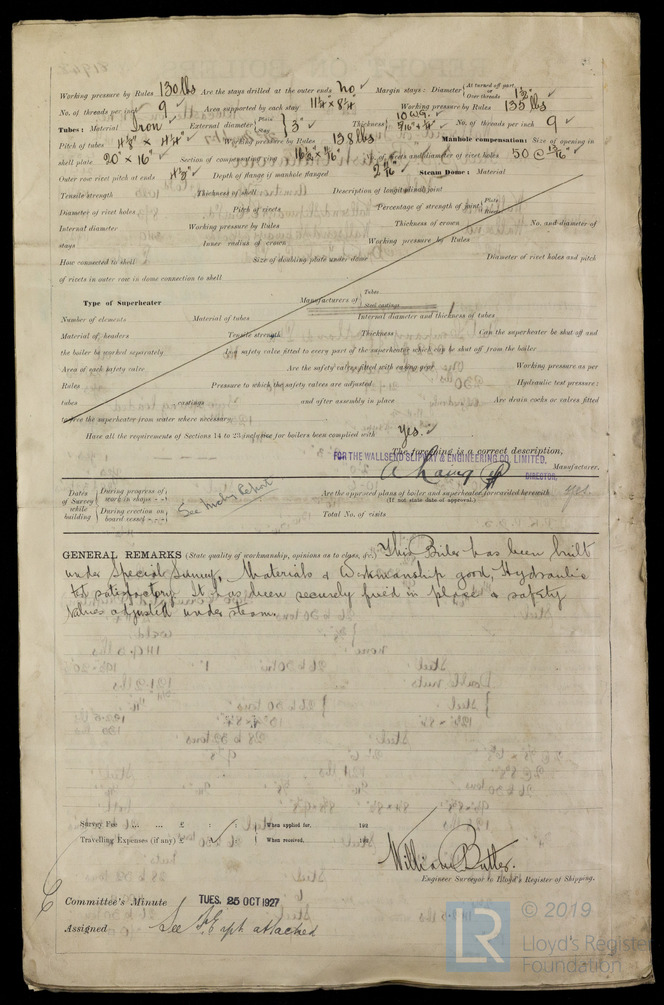 Working pressure by Rules 130 lbs Are the stays drilled at the outer ends no Margin stays: Diameter { At turned off part, Over threads 1½"
No. of threads per inch 9 Area supported by each stay Working pressure by Rules 135 lbs
Tubes: Material Iron External diameter { Plain Stay } 3" Thickness { 10 W.G. No. of threads per inch 9
Pitch of tubes Working pressure by Rules 138 lbs Manhole compensation: Size of opening in
shell plate 20" × 16" Section of compensating ring No. of rivets and diameter of rivet holes 50 @
Outer row rivet pitch at ends Depth of flange if manhole flanged Steam Dome: Material
Tensile strength Thickness of shell Description of longitudinal joint
Diameter of rivet holes Pitch of rivets Percentage of strength of joint { Plate Rivets
Internal diameter Working pressure by Rules Thickness of crown No. and diameter of
stays Inner radius of crown Working pressure by Rules
How connected to shell Size of doubling plate under dome Diameter of rivet holes and pitch
of rivets in outer row in dome connection to shell
Type of Superheater Manufacturers of { Tubes Steel castings
Number of elements Material of tubes Internal diameter and thickness of tubes
Material of headers Tensile strength Thickness Can the superheater be shut off and
the boiler be worked separately Is a safety valve fitted to every part of the superheater which can be shut off from the boiler
Area of each safety valve Are the safety valves fitted with easing gear Working pressure as per
Rules Pressure to which the safety valves are adjusted Hydraulic test pressure:
tubes castings and after assembly in place Are drain cocks or valves fitted
to free the superheater from water where necessary
Have all the requirements of Sections 14 to 23 inclusive for boilers been complied with Yes.
The foregoing is a correct description,
FOR THE WALLSEND SLIPWAY & ENGINEERING CO. LIMITED.
Manufacturer.
DIRECTOR.
Dates of Survey while building { During progress of work in shops - - During erection on board vessel - - - See Mchy Report
Are the approved plans of boiler and superheater forwarded herewith yes
(If not state date of approval.)
Total No. of visits
GENERAL REMARKS (State quality of workmanship, opinions as to class, &c.) This Boiler has been built
under Special Survey, Materials & Workmanship good, Hydraulic
test satisfactory. It has been securely fixed in place & safety
valves adjusted under steam.
Survey Fee ... ... £ : : When applied for, 192
Travelling Expenses (if any) £ : : When received, 192
William Butler.
Engineer Surveyor to Lloyd's Register of Shipping.
Committee's Minute TUES. 25 OCT 1927
Assigned See F.E. rpt attached
© 2019
LR Lloyd's Register
Foundation